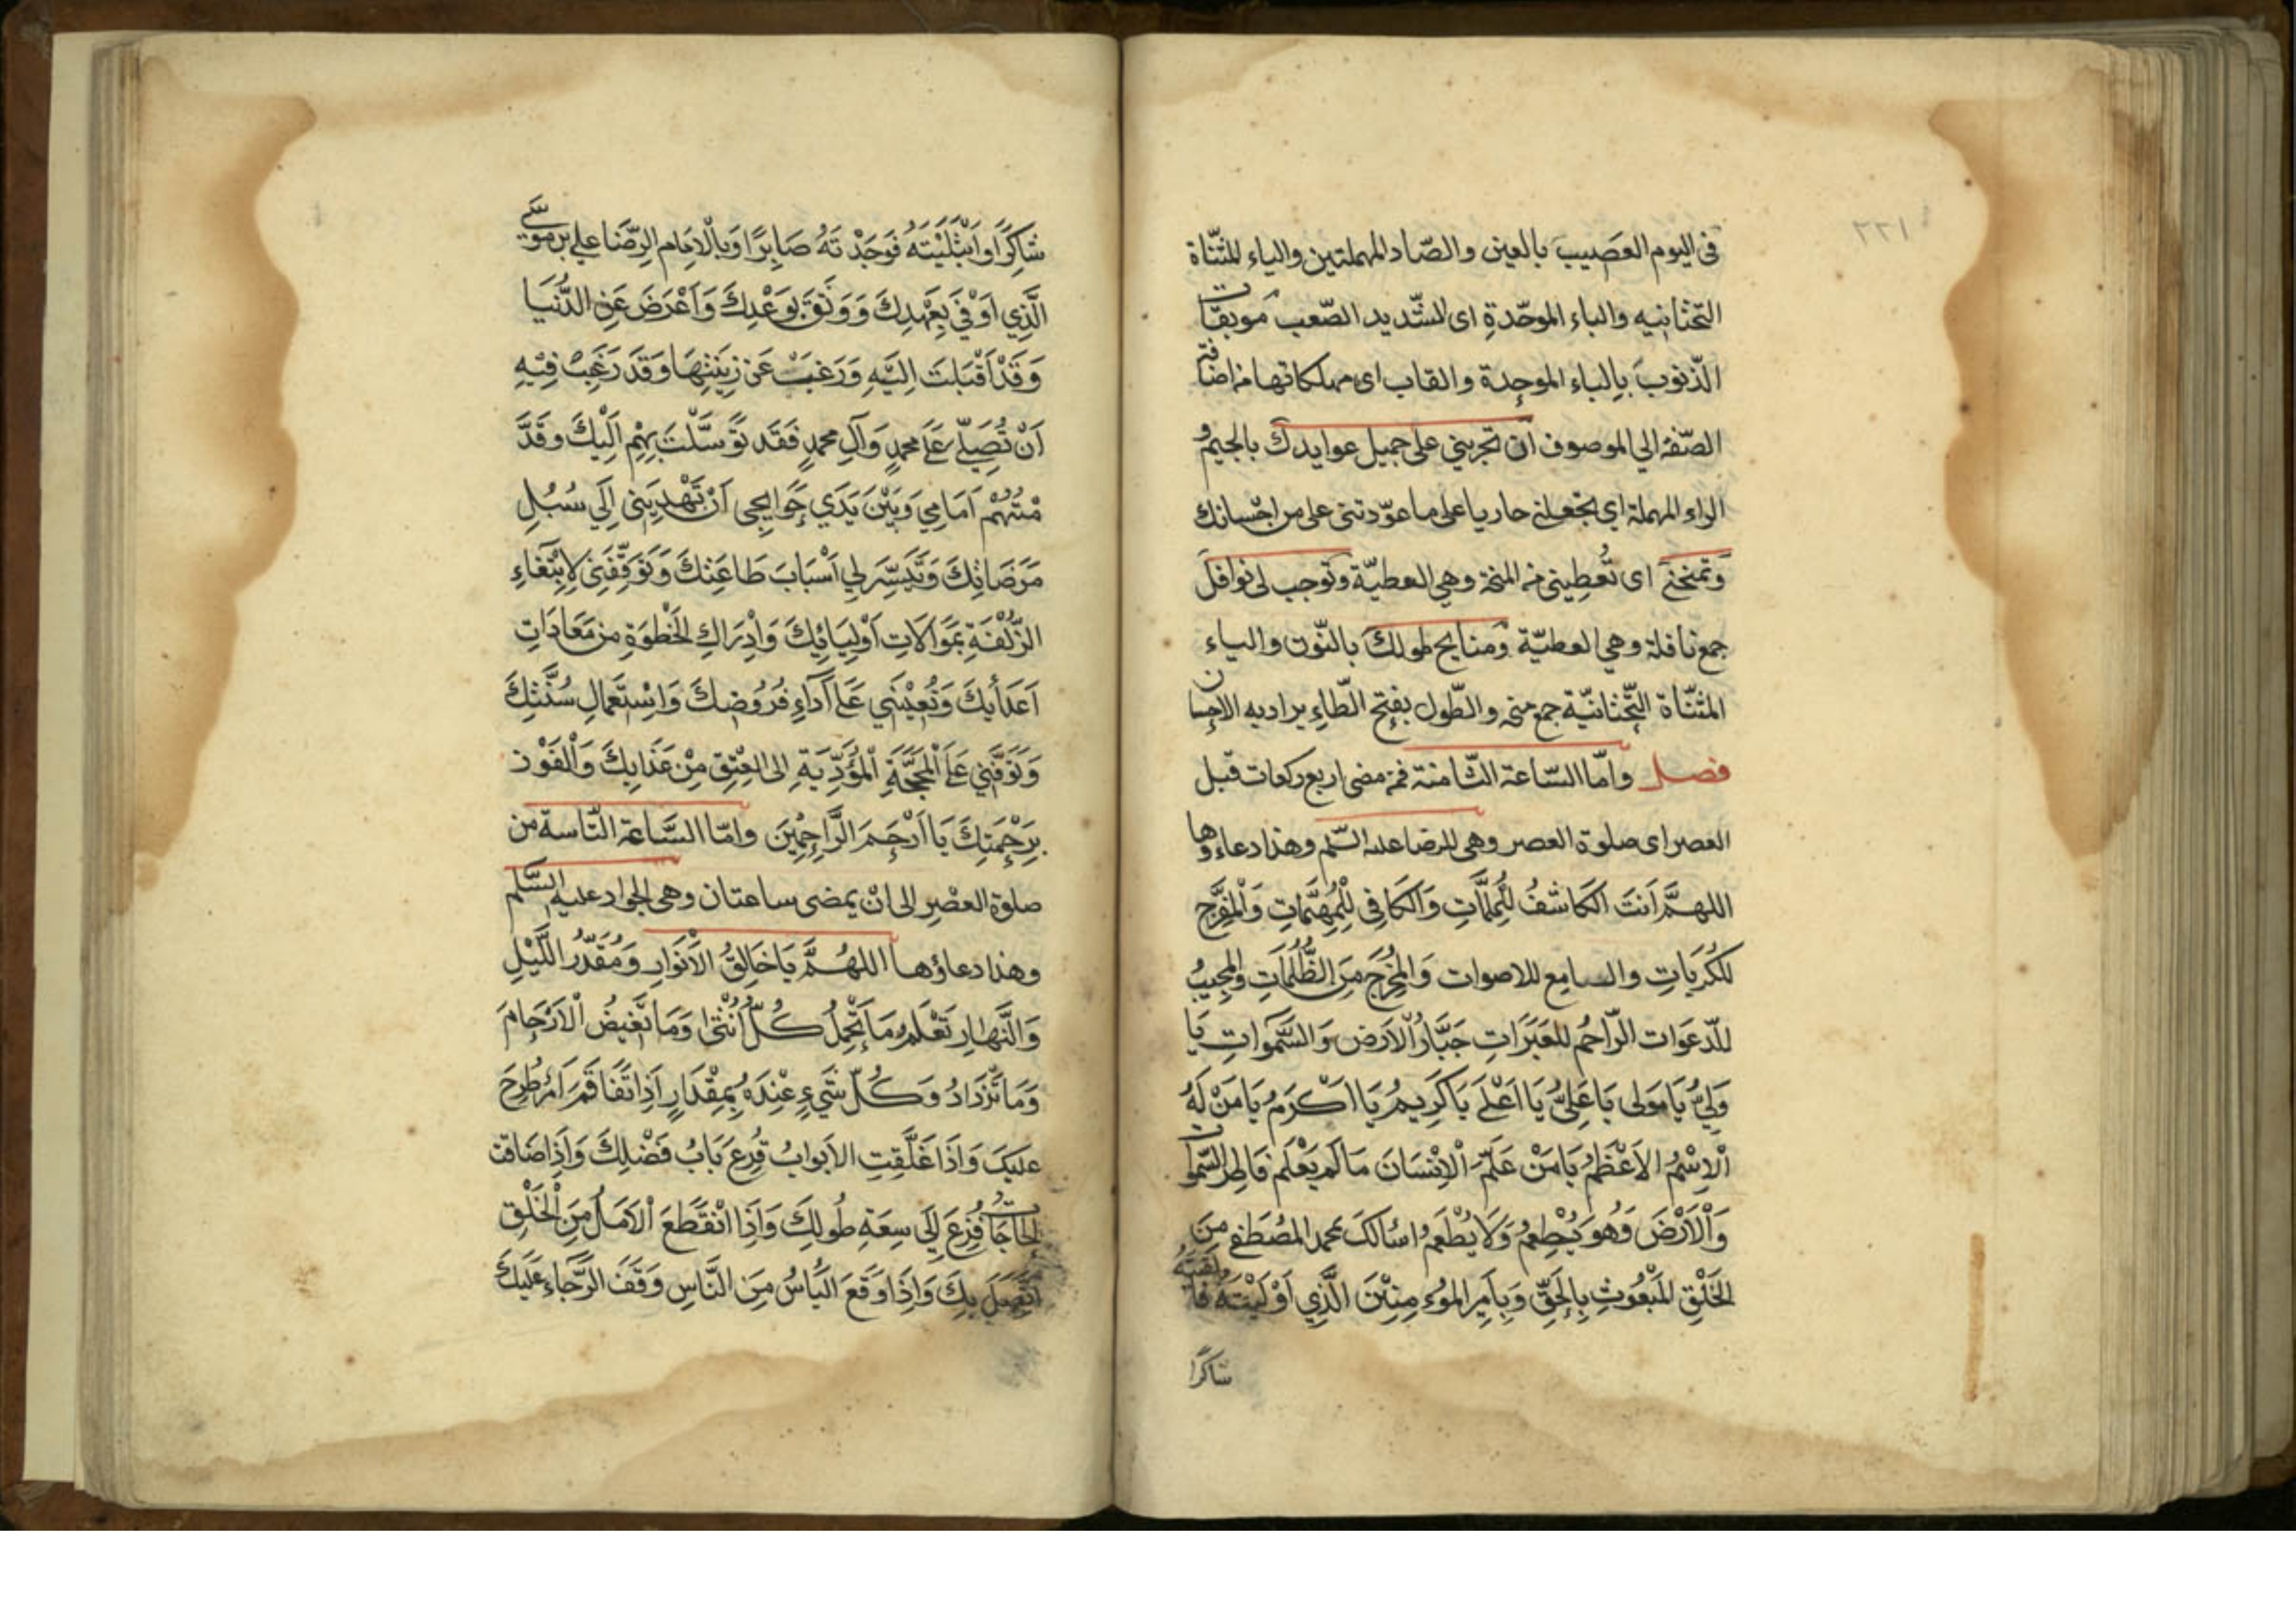 ٢٢١
فى اليوم العصيب بالعين والصّاد المهملتين والياء المثنّاة
التحتانيه والباء الموحّدة اى الشّديد الصّعب موبقات
الذّنوب بالباء الموحدة والقاب اى مهلكاتها من اضافة
الصّفة الي الموصوف ان تجريني على جميل عوايدك بالجيم و
الراء المهملة اي تجعلني حاريا على ما عوّدتني على من احسانك
وتمنحني اى تُعطِيني من المنحة وهي العطيّة وتوجب لى نوافل
جمع نافلة وهي العطيّة ومنايح طولك بالنّون والياء
المثنّاة التّحتانيّة جمع منحه والطّول بفتح الطّاء يراد به الاحسان
فصل وامّا السّاعة الثّامنة فمن مضى اربع ركعات قبل
العصر اى صلوة العصر وهى للرضا عليه السّلم وهذا دعاؤها
اللهمَّ اَنتَ الكَاشفُ لِلْمُلِمَّاتِ وَالكَافِى لِلْمُهِمَّاتِ وَالْمُفَرِّج
لِلكُرُبَاتِ والسامِع للاصوات وَالمُخْرِجَ مِنَ الظُّلُمَاتِ وَالمُجِيبُ
للدّعَوات الرّاحمُ للعَبَرَاتِ جَبَّارُ الْاَرْض وَالسَّمٰواتِ يَا
وَلِيُّ يَا مَولى يَا عَلِيُّ يَا اَعْلَى يَا كَرِيمُ يَا اَكْرَمُ يَا مَنْ لَهُ
الْاِسْمُ الاَعْظَمُ يَا مَنْ عَلَّمَ الْاِنْسَانَ مَا لَمْ يَعْلَمْ فَاطِرَ السّمٰوات
وَالْاَرْضَ وَهُوَ يُطْعِمُ وَلَا يُطْعَمُ اسْالكَ بمحمد المُصْطَفٰى مِنَ
الخَلْقِ المَبْعُوثِ بِالحَقِّ وَبِاَمِير المُؤمِنِيْنَ الَّذِي اَوْلَيْتَهُ فَالْفَيْتَهُ
شاكرًا
شَاكِرًا وَابْتَلَيْتَهُ فَوَجَدْتَهُ صَابِرًا وَبِالْاِمَامِ الرِّضَا علي بن موسى
الَّذِي اَوْفٰى بِعَهْدِكَ وَوَثَقَ بِوَعْدِكَ وَاَعْرَضَ عَنِ الدُّنيَا
وَقَدْ اَقْبَلَت اِليَهِ وَرَغِبَ عَنْ زِينَتِهَا وَقَد رَغِبَتْ فِيْهِ
اَنْ تُصَلِّيَ عَلٰى محمدٍ وَآلِ محمدٍ فَقَد تَوَسَّلْتُ بِهِمْ اِلَيْكَ وقَدَّ
مْتُهُمْ اَمَامِي وَبَيْنَ يَدَي حَوَايِجِى اَنْ تَهْدِيَنِى اِلَى سُبُلِ
مَرضَاتِكَ وَتُيَسِّرَ لِي اَسْبَابَ طَاعَتِكَ وَتُوَفِّقَنِي لِاِبْتِغَاءِ
الزُّلْفَةِ بِمَوَالَاتِ اَوْلِيَائِكَ وَاِدْرَاكِ الحُظوَةِ من مَعَادَاتِ
اَعْدَائِكَ وَتُعِيْنَنِي عَلَى اَدَاءِ فُرُوضِكَ وَاِسْتِعْمَالِ سُنَّتِكَ
وَتُوَقِّفَنِي عَلَى الْمَحَجَّةِ الْمُؤَدِّيَةِ الى العِتقِ مِنْ عَذَابِكَ وَالْفَوْزِ
بِرَحْمَتِكَ يَا اَرْحَمَ الرَّاحِمِيْنَ وامّا السَّاعة التّاسعة من
صلوة العصْر الى انْ يمضى ساعتان وهى للجواد عليه السّلم
وهذا دعاؤها اللهُمَّ يَا خَالِقَ الْاَنْوَارِ وَمُقَدِّرُ اللَّيْلِ
وَالنَّهَارِ تَعْلَمُ مَا تَحْمِلُ كُلُّ اُنْثٰى وَمَا تَغِيضُ الْاَرْحَامُ
وَمَا تَزْدَادُ وَكُلُّ شَيْءٍ عِنْدَهُ بِمِقْدَارٍ اِذَا تَفَاقَمَ اَمْرٌ طُرِحَ
عليكَ وَاِذَا غُلِّقتِ الاَبوابُ قُرِعَ بَابُ فَضْلِكَ وَاِذَا ضَاقت
الحَاجَات فُزِعَ اِلَى سِعَةِ طُولِكَ وَاِذَا انْقَطَعَ الْاَمَلُ مِنَ الْخَلْقِ
اتَّصَلَ بِكَ وَاِذَا وَقَعَ اليَاسُ مِنَ النَّاسِ وَقَفَ الرَّجَاء عَلَيْكَ